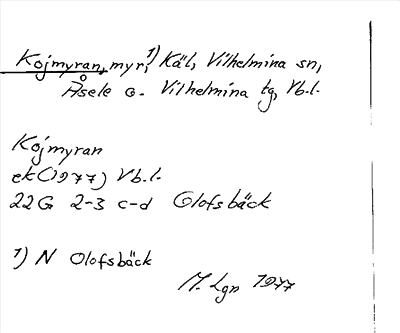 Kojmyran, myr,¹) Käl, Vilhelmina sn,
Åsele o. Vilhelmina tg, Vb.l.
Kojmyran
ek (1977) Vb.l.
22G 2-3 c-d Olofsbäck
1) N Olofsbäck
M. Lgn 1977